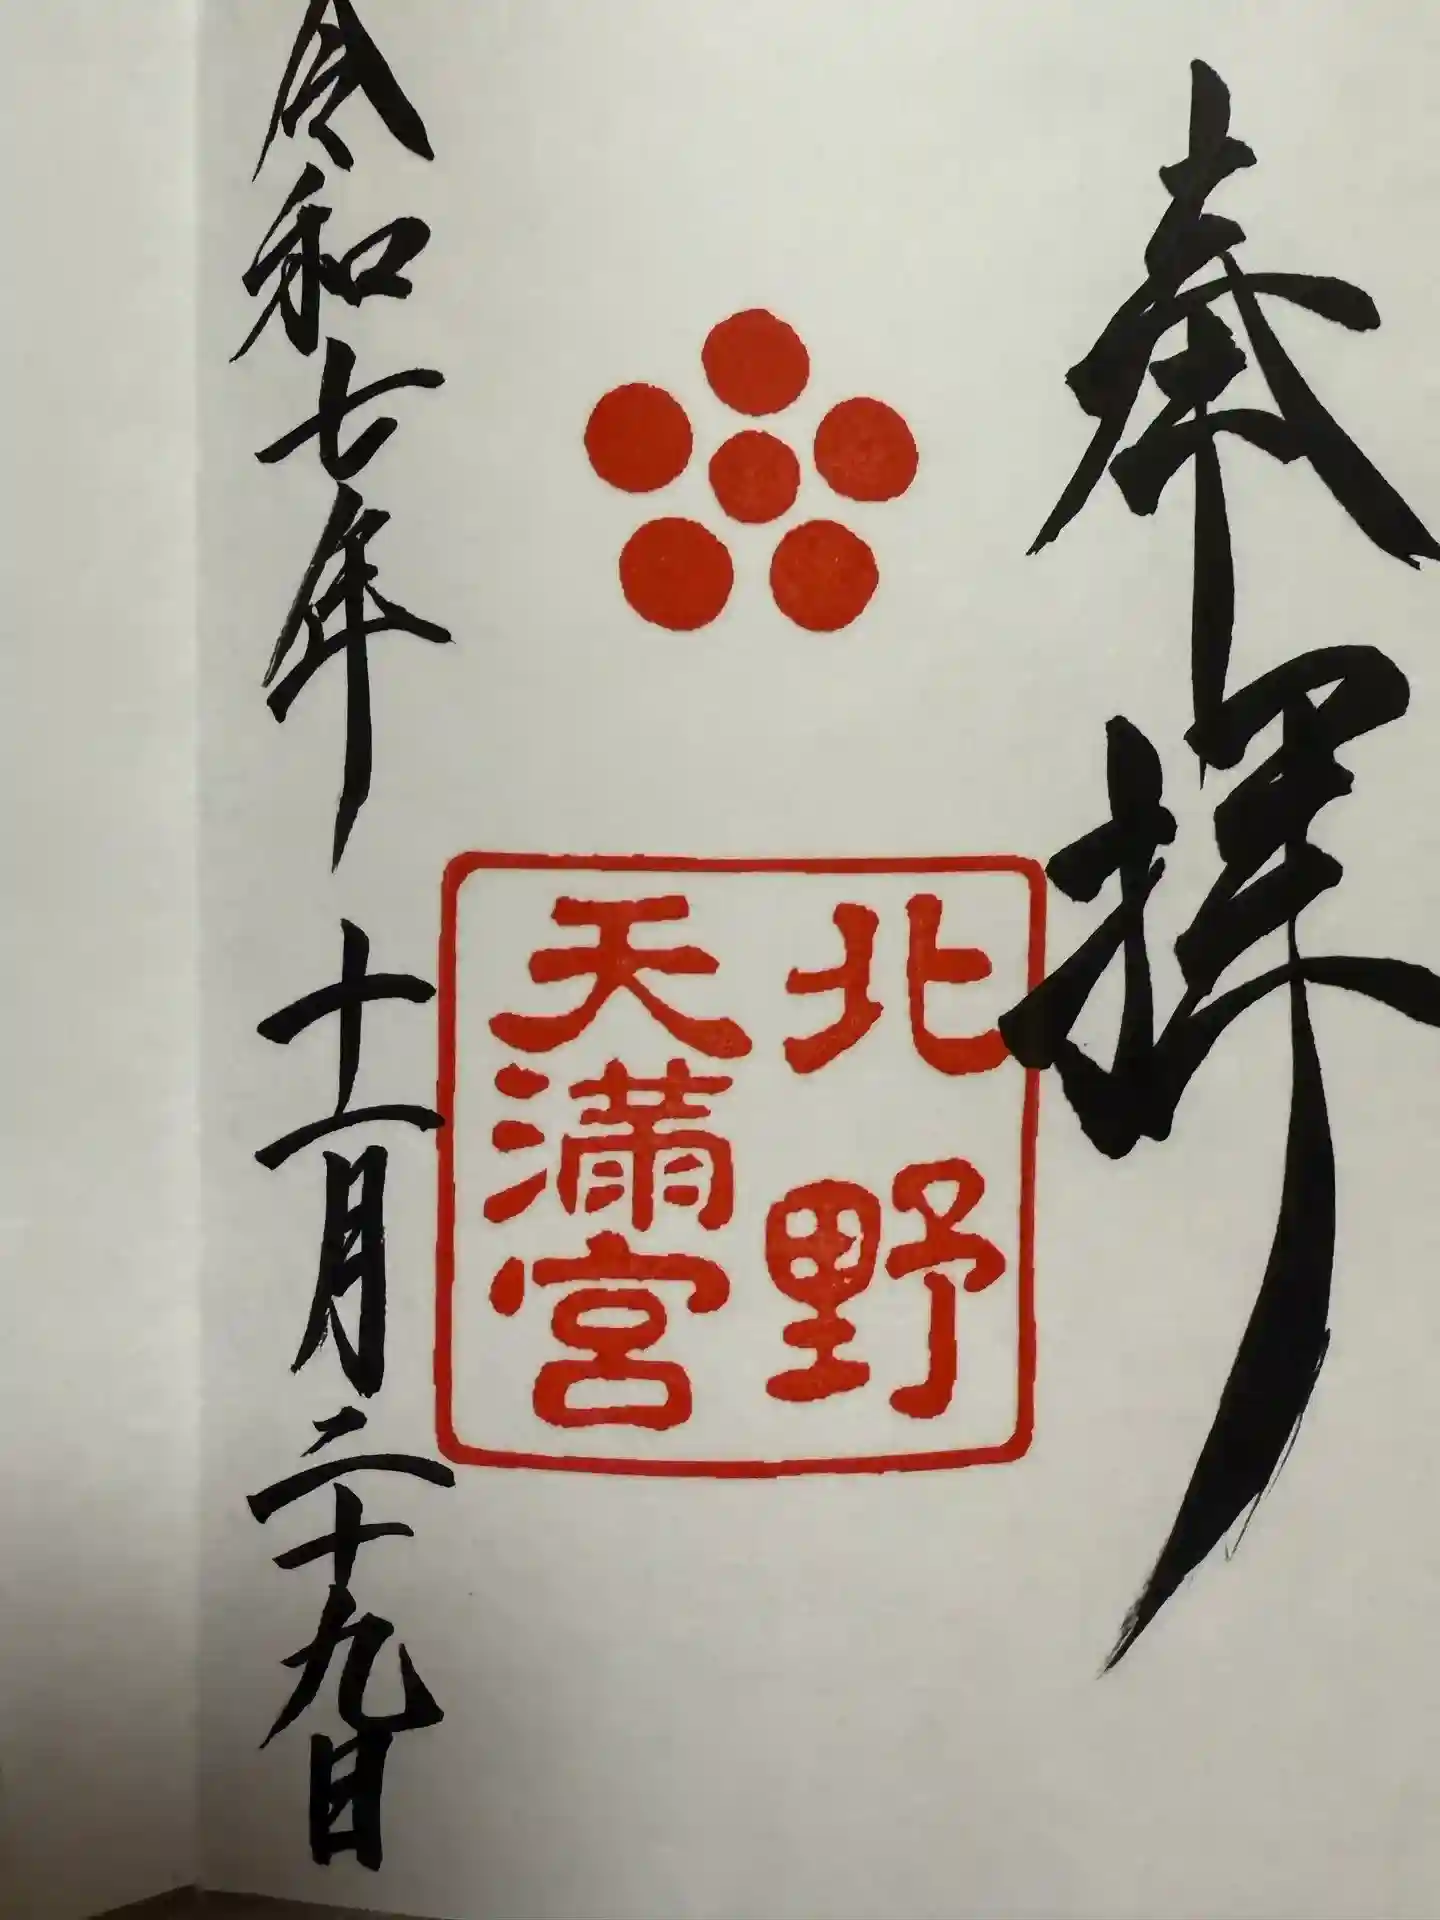 奉拝
北野
天満宮
令和七年十一月二十九日